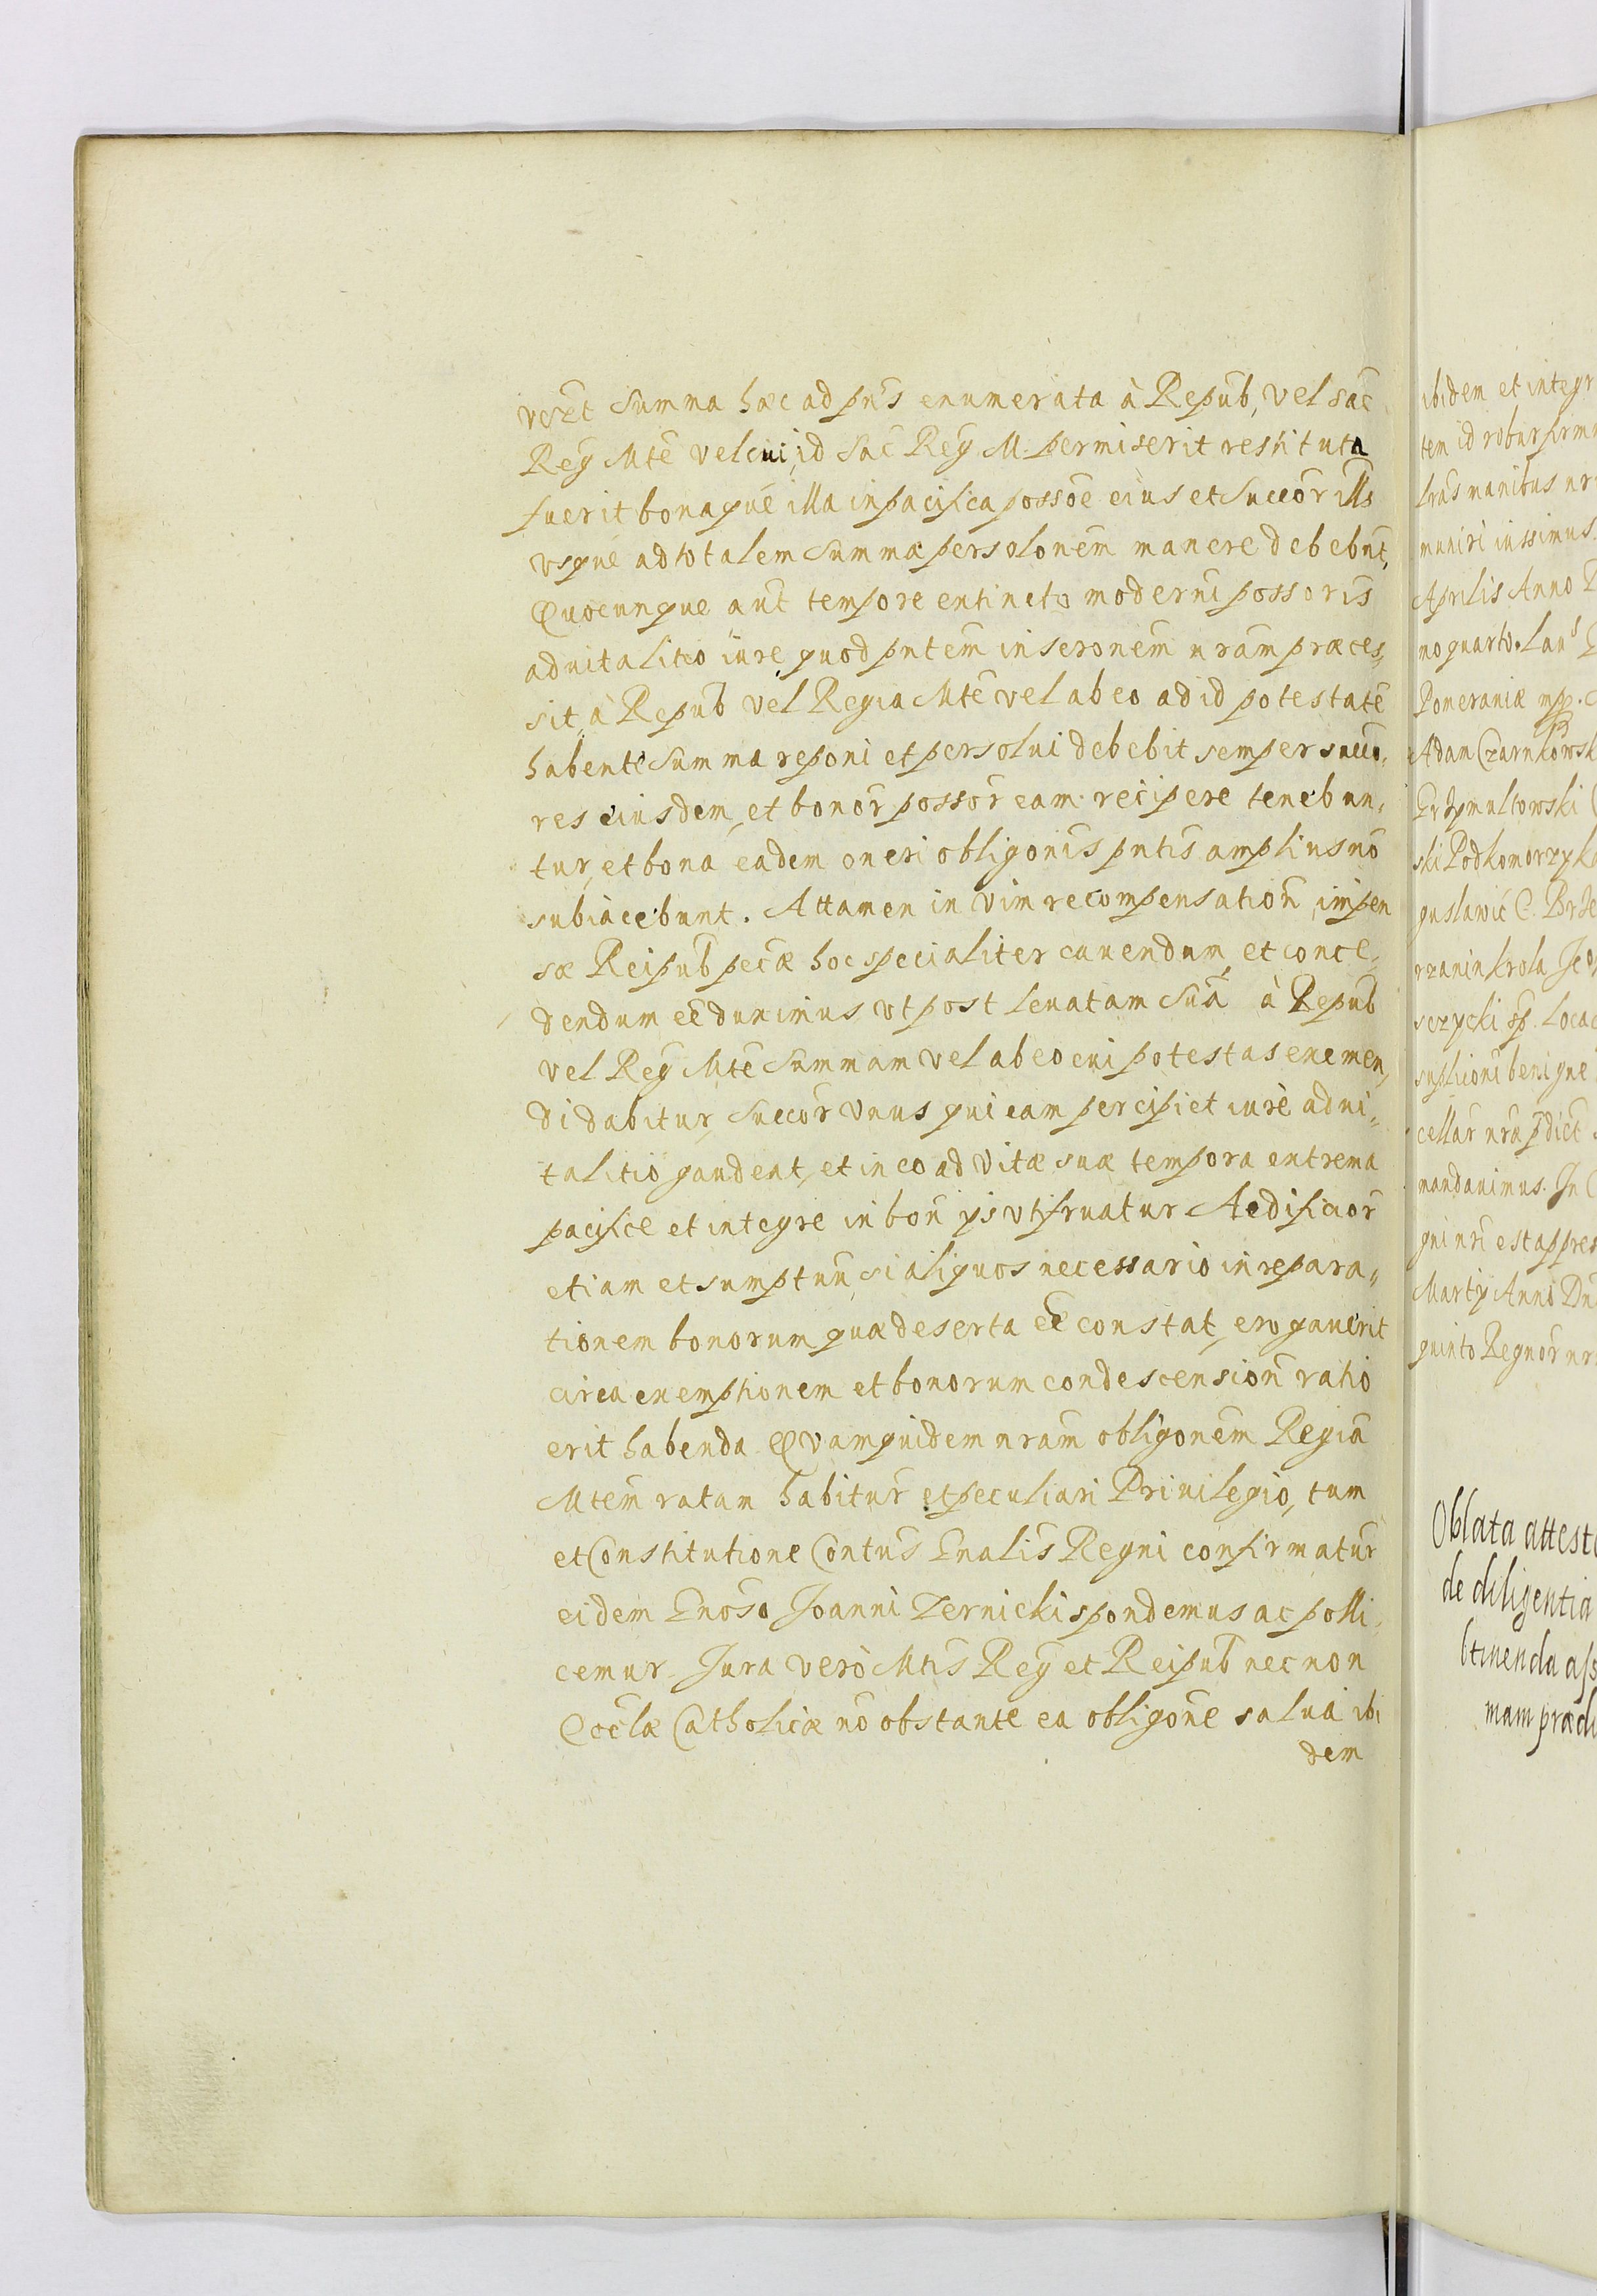 summa haec ad pn̄s enumerata à Repub̄, vel sac̄
Reg̃ Mtē vel cui id Sac̄ Reg̃ M. permiserit restituta
fuerit bonaque illa in pacifica possōe eius et Succor̄ ill̄s
vsque ad totalem summae persolonēm manere debebn̄t,
Quocunque aūt tempore extincto moderni possoris̄
aduitalitio iure quod pn̄tem inseronēm nrām praeces,,
sit, à Repub̄ vel Regia Mtē vel ab eo ad id potestatē
habentē Summa reponi et persolui debebit semper succo,,
res eiusdem, et bonor̄ possor̄ eam recipere tenebun,,
tur, et bona eadem oneri obligonis̄ pn̄tis amplius nō
subiacebunt. Attamen in vim recompensation̄ impen
sae Reipub̄ pec̄ae hoc specialiter cauendum, et conce,,
dendum eē duximus vt post leuatam Suā à Repub̄
vel Reg̃ Mtē Summam vel ab eo cui potestas exemen,,
di dabitur, Succor̄ Vnus qui eam percipiet iurè adui,,
talitio gaudeat, et in eo ad Vitae suae tempora extrema
pacificè et integre in bon̄ ijs vtifruatur Aedificior̄
etiam et sumptuū, si aliquos necessario in repara,,
tionem bonorum quae deserta eē constat, erogauerit
circa exemptionem et bonorum condescension̄ ratio
erit habenda Quamquidem nrām obligonēm Regiā
Mtem̄ ratam habitur̄ et peculiari Priuilegio, tum
et Constitutione Contus̄ Gnalis̄ Regni confirmatur̄
eidem Gnoso Joanni Zernicki spondemus ac polli,,
cemur. Jura verò Mtis̄ Reg̃ et Reipub̄ nec non
Eccl̄ae Catholicae nō obstante ea obligonē salua ibi
dem
ibidem et integr
tem id robur firm
lrās manibus nr
muniri iussimus.
Aprilis Anno D
no quarto. Lau
Pomeraniae mp.
Adam Czarnkowsk
Przymultowski
ski Podkomorzy k
guslawic C. Brze
rzanin krola Je
sczycki sp. Loca
suplicōni benigne
cellar̄ nrā p̄dict
mandauimus. In C
qui nrī est appre
Martij Anno Dn
quinto Regnor̄ nr
Oblata attest
de diligentia
btinenda ass
mam praedi